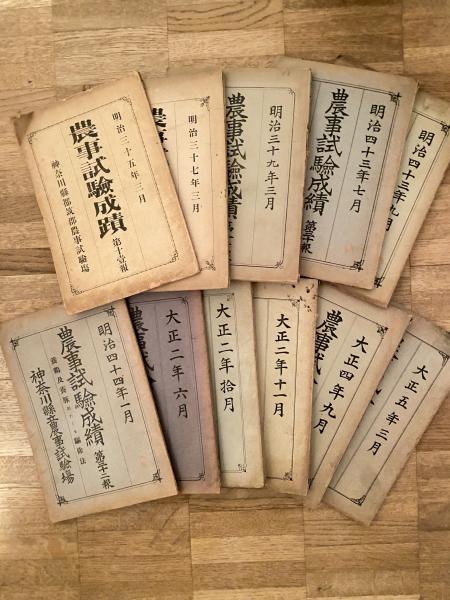 明治三十五年三月
農事試驗成蹟 第十壹報
神奈川縣都筑郡農事試驗場
明治三十七年三月
農事
明治三十九年三月
農事試驗成績
明治四十三年七月
農事試驗成績
明治四十三年九月
明治四十四年一月
農事試驗成績
神奈川縣立農事試驗場
大正二年六月
農事試
大正二年拾月
大正二年十一月
大正四年九月
農事試
大正五年三月